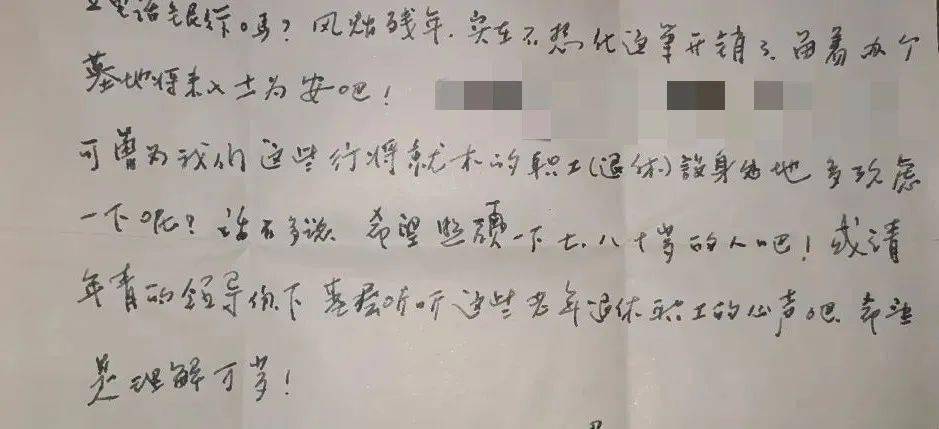 吗？风烛残年.实在不想化这笔开销了.留着办个
墓地将来入土为安吧！
可曾为我们这些行将就木的职工(退休)設身处地多攷虑
一下呢？话不多说.希望照顾一下七.八十岁的人吧！或请
年青的领导你下基层听听这些老年退休职工的心声吧.希望
是理解万岁！